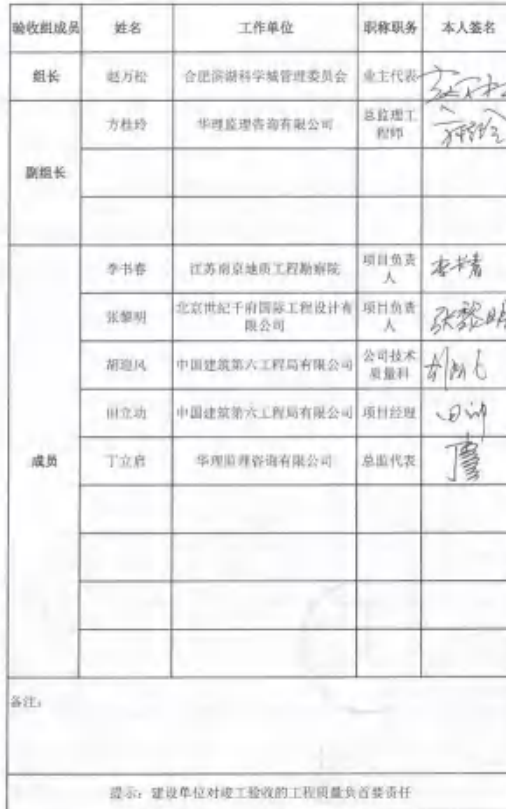 验收组成员 姓名 工作单位 职称职务 本人签名
组长 赵万松 合肥滨湖科学城管理委员会 业主代表
副组长 方桂玲 华理监理咨询有限公司 总监理工
程师
成员 李书春 江苏南京地质工程勘察院 项目负责
人
张黎明 北京世纪千府国际工程设计有 项目负责
限公司 人
胡迎风 中国建筑第六工程局有限公司 公司技术
质量科
田立功 中国建筑第六工程局有限公司 项目经理
丁立启 华理监理咨询有限公司 总监代表
备注:
提示:建设单位对竣工验收的工程质量负首要责任